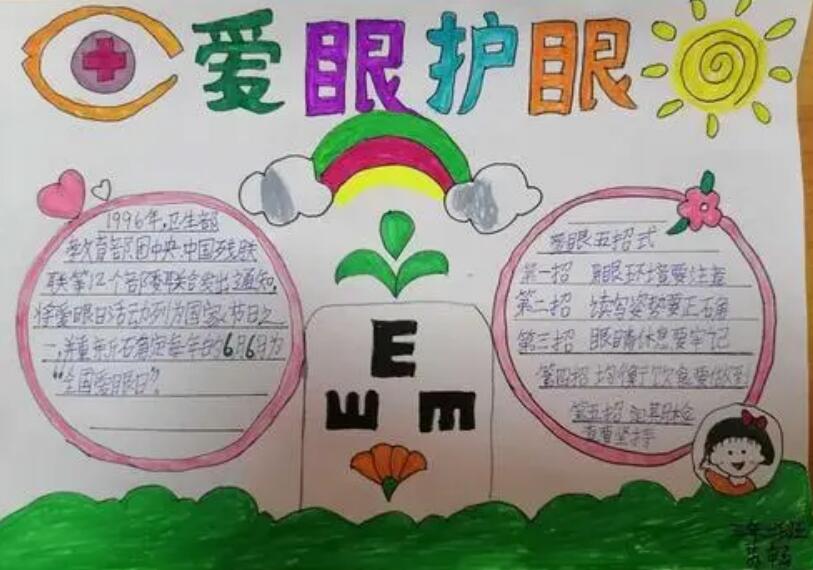 爱眼护眼
1996年,卫生部
教育部团中央中国残联
联等12个部委联合发出通知,
将爱眼日活动列为国家节日之
一,并重新确定每年的6月6日为
"全国爱眼日"。
爱眼五招式
第一招 用眼环境要注意
第二招 读写姿势要正确
第三招 眼睛休息要牢记
第四招 均衡饮食要做到
第五招 定期检
查要坚持
E
E E
三年班